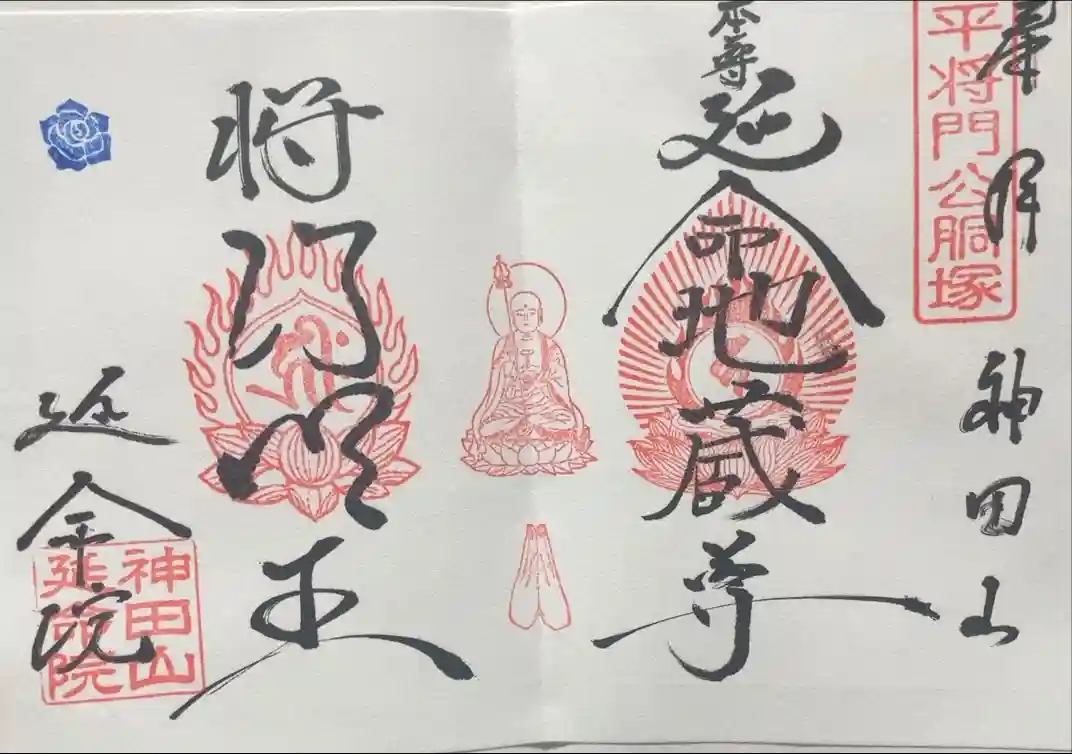 奉拝 神田山
平将門公胴塚
本尊
延命地蔵尊
将門明王
延命院
神田山
延命院